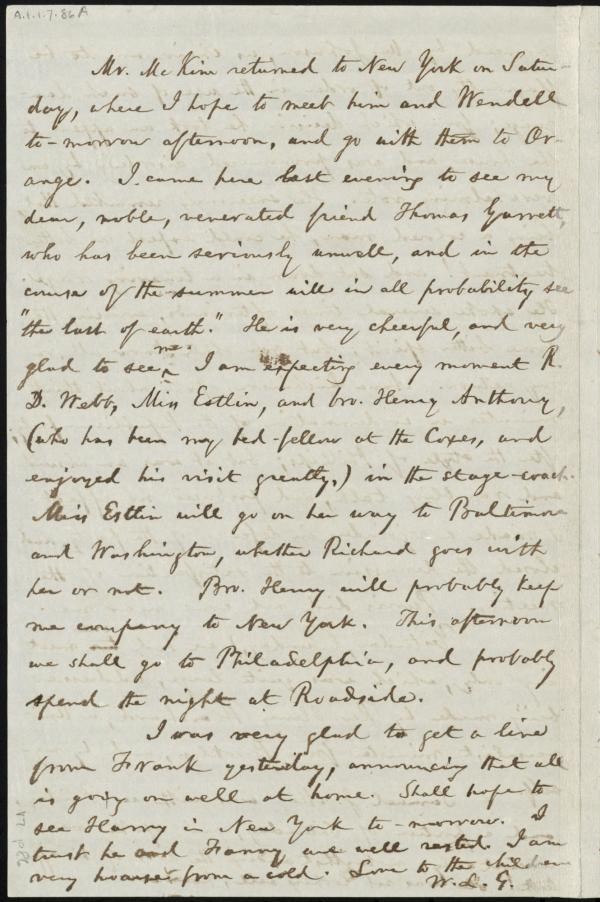 A.1.1.7.86A
Mr. McKim returned to New York on Satur-
day, where I hope to meet him and Wendell
to-morrow afternoon, and go with them to Or-
ange. I came here last evening to see my
dear, noble, venerated friend Thomas Garrett,
who has been seriously unwell, and in the
course of the summer will in all probability see
"the last of earth." He is very cheerful, and very
glad to see me. I am expecting every moment R.
D. Webb, Miss Estlin, and bro. Henry Anthony,
(who has been my bed-fellow at the Coxes, and
enjoyed his visit greatly,) in the stage-coach.
Miss Estlin will go on her way to Baltimore
and Washington, whether Richard goes with
her or not. Bro. Henry will probably keep
me company to New York. This afternoon
we shall go to Philadelphia, and probably
spend the night at Roadside.
I was very glad to get a line
from Frank yesterday, announcing that all
is going on well at home. Shall hope to
see Harry in New York to-morrow. I
trust he and Fanny are well rested. I am
very hoarse from a cold. Love to the children
W. L. G.